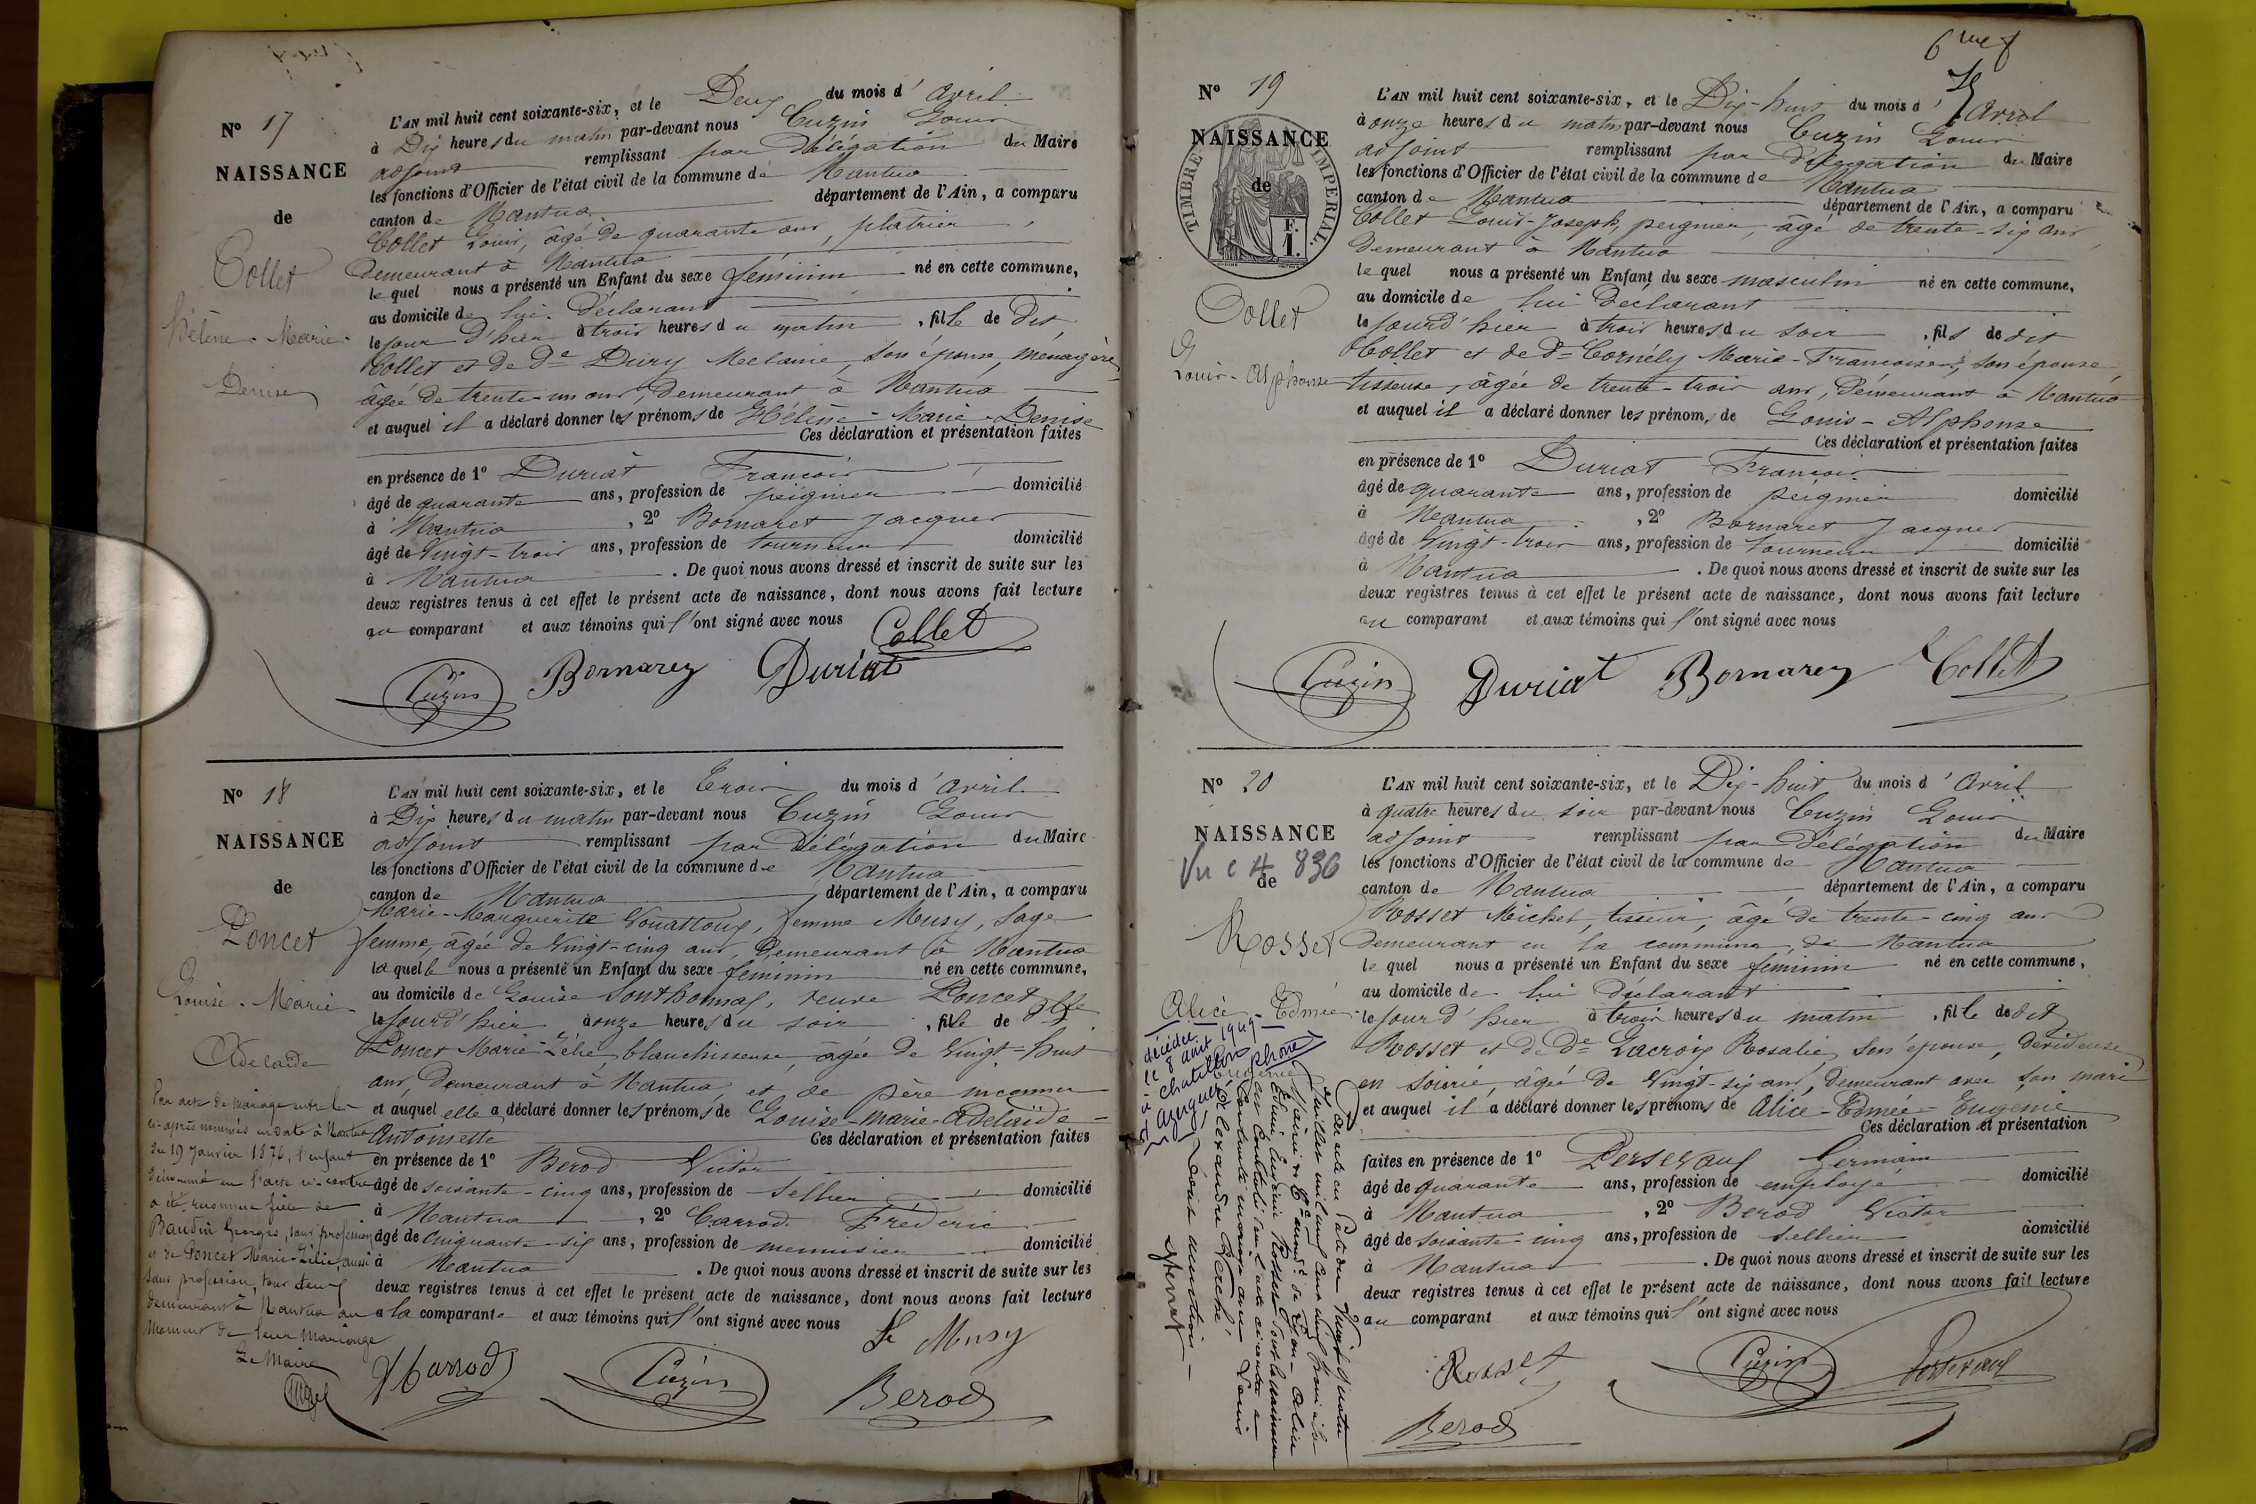 N° 17
NAISSANCE
de
Collet
Hélène - Marie -
Denise
L'AN mil huit cent soixante-six, et le Deux du mois d'avril
à Dix heures du matin par-devant nous Cuzin Louis
adjoint remplissant par Délégation du Maire
les fonctions d'Officier de l'état civil de la commune de Nantua
canton de Nantua département de l'Ain, a comparu
Collet Louis, âgé de quarante ans, platrier,
demeurant à Nantua
lequel nous a présenté un Enfant du sexe féminin né en cette commune,
au domicile de lui Déclarant
le jour d'hier à trois heures du matin, fille de dit
Collet et de De Dury Melanie, son épouse, ménagère
âgée de trente-un ans, demeurant à Nantua
et auquel il a déclaré donner les prénoms de Hélène - Marie - Denise
Ces déclaration et présentation faites
en présence de 1° Duriat François
âgé de quarante ans, profession de peignier domicilié
à Nantua, 2° Bornaret Jacques
âgé de Vingt-trois ans, profession de tourneur domicilié
à Nantua. De quoi nous avons dressé et inscrit de suite sur les
deux registres tenus à cet effet le présent acte de naissance, dont nous avons fait lecture
au comparant et aux témoins qui l'ont signé avec nous
Collet
Cuzin Bornarez Duriat
N° 18
NAISSANCE
de
Poncet
Louise - Marie -
Adelaïde
Par acte de mariage entre les
ci-après nommés en date à Nantua
du 19 Janvier 1876, l'enfant
dénommé en l'acte ci-contre
a été reconnue fille de
Baudin Georges, sans profession
et de Poncet Marie-Zélie, aussi
sans profession, tous deux
demeurant à Nantua au
moment de leur mariage
Le Maire
L'AN mil huit cent soixante-six, et le Trois du mois d'avril
à Dix heures du matin par-devant nous Cuzin Louis
adjoint remplissant par Délégation du Maire
les fonctions d'Officier de l'état civil de la commune de Nantua
canton de Nantua département de l'Ain, a comparu
Marie-Marguerite femme Musy, Sage
femme, âgée de Vingt-cinq ans, Demeurant à Nantua
laquelle nous a présenté un Enfant du sexe féminin né en cette commune,
au domicile de Louise Sonthonnas, veuve Poncet
le jour d'hier à onze heures du soir, fille de Dlle
Poncet Marie-Zélie, blanchisseuse, âgée de Vingt-huit
ans, Demeurant à Nantua, et de père inconnu
et auquel elle a déclaré donner les prénoms de Louise-Marie-Adelaïde-
Antoinette Ces déclaration et présentation faites
en présence de 1° Berod Victor
âgé de soixante-cinq ans, profession de Sellier domicilié
à Nantua, 2° Carrod Frédéric
âgé de cinquante-six ans, profession de menuisier domicilié
à Nantua. De quoi nous avons dressé et inscrit de suite sur les
deux registres tenus à cet effet le présent acte de naissance, dont nous avons fait lecture
a la comparante et aux témoins qui l'ont signé avec nous
Musy
Carrod Cuzin Berod
N° 19
NAISSANCE
de
TIMBRE IMPÉRIAL.
1 F.
Collet
Louis - Alphonse
L'AN mil huit cent soixante-six, et le Dix-huit du mois d'Avril
à onze heures du matin par-devant nous Cuzin Louis
adjoint remplissant par délégation du Maire
les fonctions d'Officier de l'état civil de la commune de Nantua
canton de Nantua département de l'Ain, a comparu
Collet Louis-Joseph, peignier, âgé de trente-six ans,
demeurant à Nantua
lequel nous a présenté un Enfant du sexe masculin né en cette commune,
au domicile de lui déclarant
le jour d'hier à trois heures du soir, fils de dit
Collet et de De Cornély Marie-Françoise, son épouse,
tisseuse, âgée de trente-trois ans, demeurant à Nantua
et auquel il a déclaré donner les prénoms de Louis - Alphonse
Ces déclaration et présentation faites
en présence de 1° Duriat François
âgé de quarante ans, profession de peignier domicilié
à Nantua, 2° Bornaret Jacques
âgé de Vingt-trois ans, profession de tourneur domicilié
à Nantua. De quoi nous avons dressé et inscrit de suite sur les
deux registres tenus à cet effet le présent acte de naissance, dont nous avons fait lecture
au comparant et aux témoins qui l'ont signé avec nous
Cuzin Duriat Bornarez Collet
N° 20
NAISSANCE
de
836
Rosset
Alice - Edmée -
Eugénie
décédée
le 8 août 1949
à Chatillon
d'Azergues (Rhône)
L'AN mil huit cent soixante-six, et le Dix-huit du mois d'Avril
à quatre heures du soir par-devant nous Cuzin Louis
adjoint remplissant par Délégation du Maire
les fonctions d'Officier de l'état civil de la commune de Nantua
canton de Nantua département de l'Ain, a comparu
Rosset Michel, tisseur, âgé de trente-cinq ans
demeurant en la commune de Nantua
lequel nous a présenté un Enfant du sexe féminin né en cette commune,
au domicile de lui Déclarant
le jour d'hier à trois heures du matin, fille de dit
Rosset et de De Lacroix Rosalie, son épouse, devideuse
en soierie, âgée de Vingt-six ans, demeurant avec son mari
et auquel il a déclaré donner les prénoms de Alice - Edmée - Eugénie
Ces déclaration et présentation
faites en présence de 1° Persevaux Germain
âgé de quarante ans, profession de employé domicilié
à Nantua, 2° Berod Victor
âgé de soixante-cinq ans, profession de Sellier domicilié
à Nantua. De quoi nous avons dressé et inscrit de suite sur les
deux registres tenus à cet effet le présent acte de naissance, dont nous avons fait lecture
au comparant et aux témoins qui l'ont signé avec nous
Rosset Cuzin Persevaux
Berod